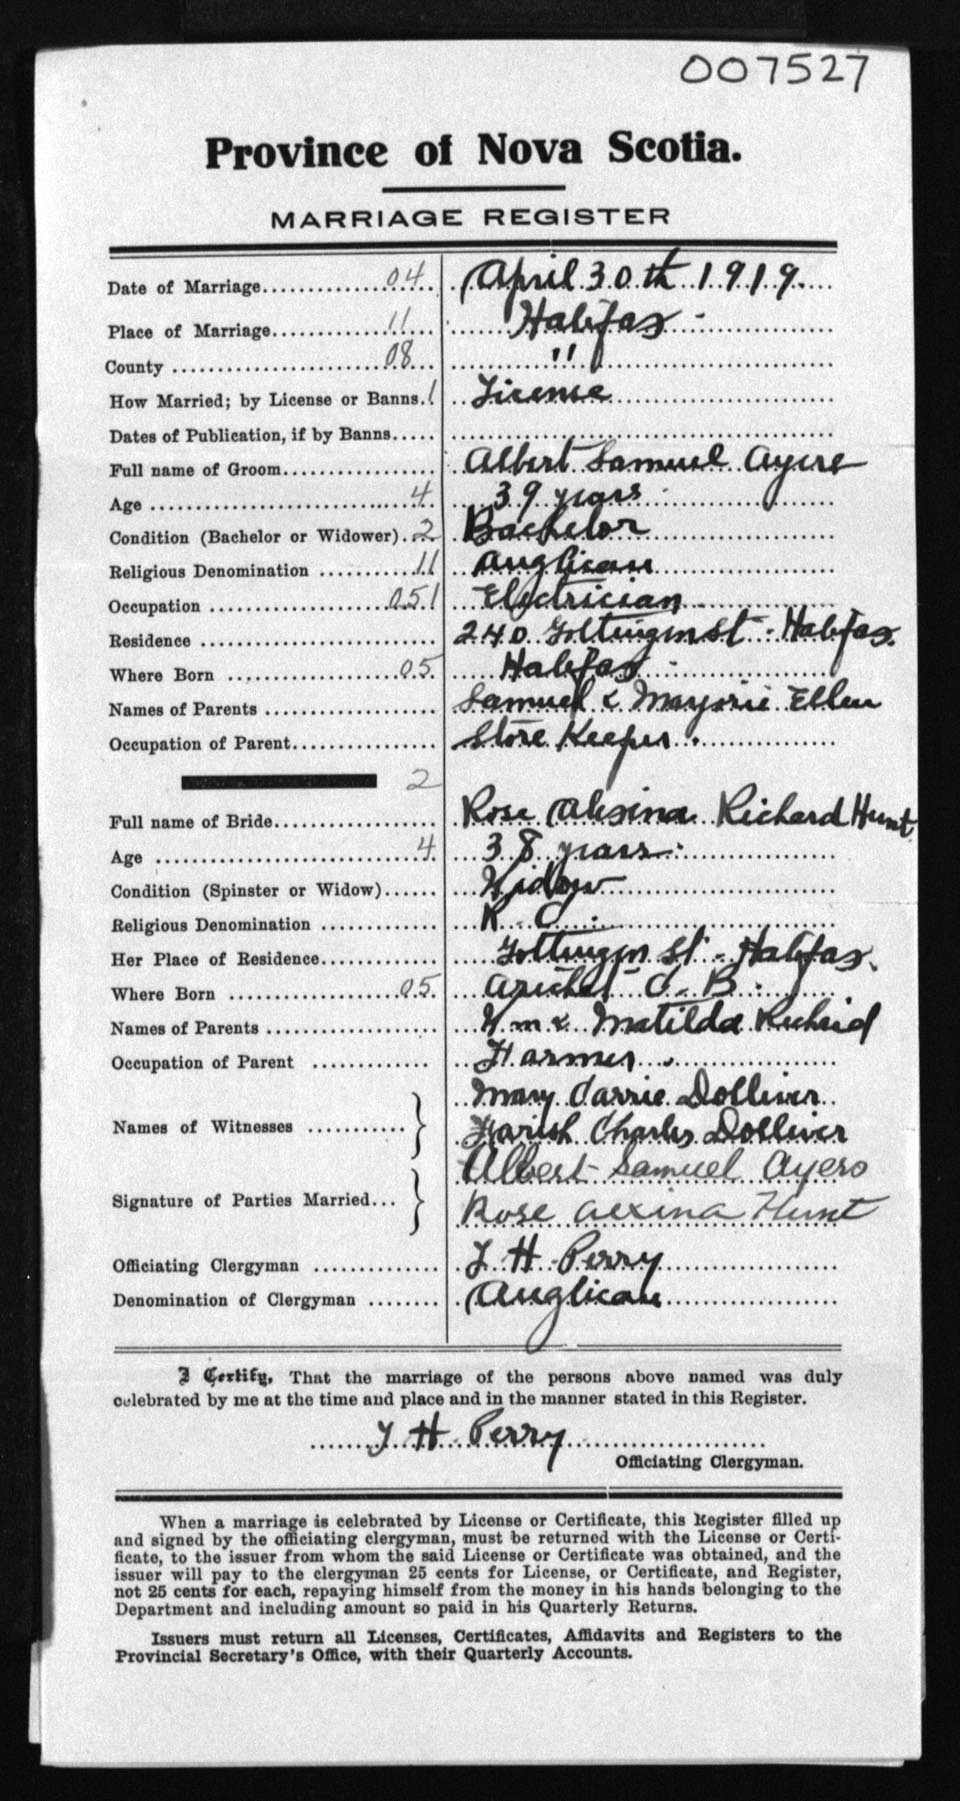 007527
Province of Nova Scotia.
MARRIAGE REGISTER
Date of Marriage 04 April 30th 1919.
Place of Marriage 11 Halifax -
County 08 "
How Married; by License or Banns. 1 License
Dates of Publication, if by Banns
Full name of Groom Albert Samuel Ayers
Age 4 39 years
Condition (Bachelor or Widower). 2 Bachelor
Religious Denomination 11 Anglican
Occupation 051 Electrician
Residence 240 Gottingen St - Halifax.
Where Born 05 Halifax -
Names of Parents Samuel & Marjorie Ellen
Occupation of Parent Store Keeper .
2
Full name of Bride Rose Alexina Richard Hunt
Age 4 38 years
Condition (Spinster or Widow) Widow
Religious Denomination R. C.
Her Place of Residence Gottingen St - Halifax.
Where Born 05 Arichat C. B.
Names of Parents Wm & Matilda Richard
Occupation of Parent Farmer .
Names of Witnesses } Mary Carrie Dolliver
Charles Dolliver
Signature of Parties Married } Albert Samuel Ayers
Rose Alexina Hunt
Officiating Clergyman T H Perry
Denomination of Clergyman Anglican
I Certify, That the marriage of the persons above named was duly
celebrated by me at the time and place and in the manner stated in this Register.
T H Perry
Officiating Clergyman.
When a marriage is celebrated by License or Certificate, this Register filled up
and signed by the officiating clergyman, must be returned with the License or Certi-
ficate, to the issuer from whom the said License or Certificate was obtained, and the
issuer will pay to the clergyman 25 cents for License, or Certificate, and Register,
not 25 cents for each, repaying himself from the money in his hands belonging to the
Department and including amount so paid in his Quarterly Returns.
Issuers must return all Licenses, Certificates, Affidavits and Registers to the
Provincial Secretary's Office, with their Quarterly Accounts.